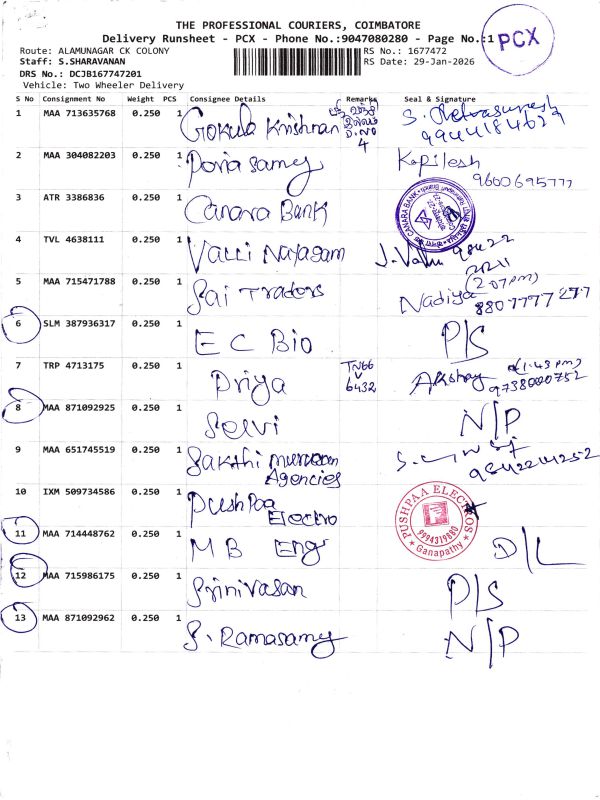 THE PROFESSIONAL COURIERS, COIMBATORE
Delivery Runsheet - PCX - Phone No.:9047080280 - Page No.:1
PCX
Route: ALAMUNAGAR CK COLONY
RS No.: 1677472
Staff: S.SHARAVANAN
RS Date: 29-Jan-2026
DRS No.: DCJB167747201
Vehicle: Two Wheeler Delivery
S No Consignment No Weight PCS Consignee Details Remarks Seal & Signature
1 MAA 713635768 0.250 1 Gokula Krishnan D.NO 4 9944184629
2 MAA 304082203 0.250 1 Ponia samy Kapilesh 9600695777
3 ATR 3386836 0.250 1 Canara Bank CANARA BANK
4 TVL 4638111 0.250 1 Valli Nayagam J. Valli 98422
5 MAA 715471788 0.250 1 Sai Traders Nadiya (2.07pm) 8807777277
6 SLM 387936317 0.250 1 E C Bio P/S
7 TRP 4713175 0.250 1 Priya TN66 V 6432 Akshay (1.43 pm) 9738000752
8 MAA 871092925 0.250 1 Selvi N/P
9 MAA 651745519 0.250 1 Sakthi murugan Agencies
10 IXM 509734586 0.250 1 PushPaa Electro PUSHPAA ELECTROS 9994319880 Ganapathy
11 MAA 714448762 0.250 1 M B Eng D/L
12 MAA 715986175 0.250 1 Srinivasan P/S
13 MAA 871092962 0.250 1 S. Ramasamy N/P